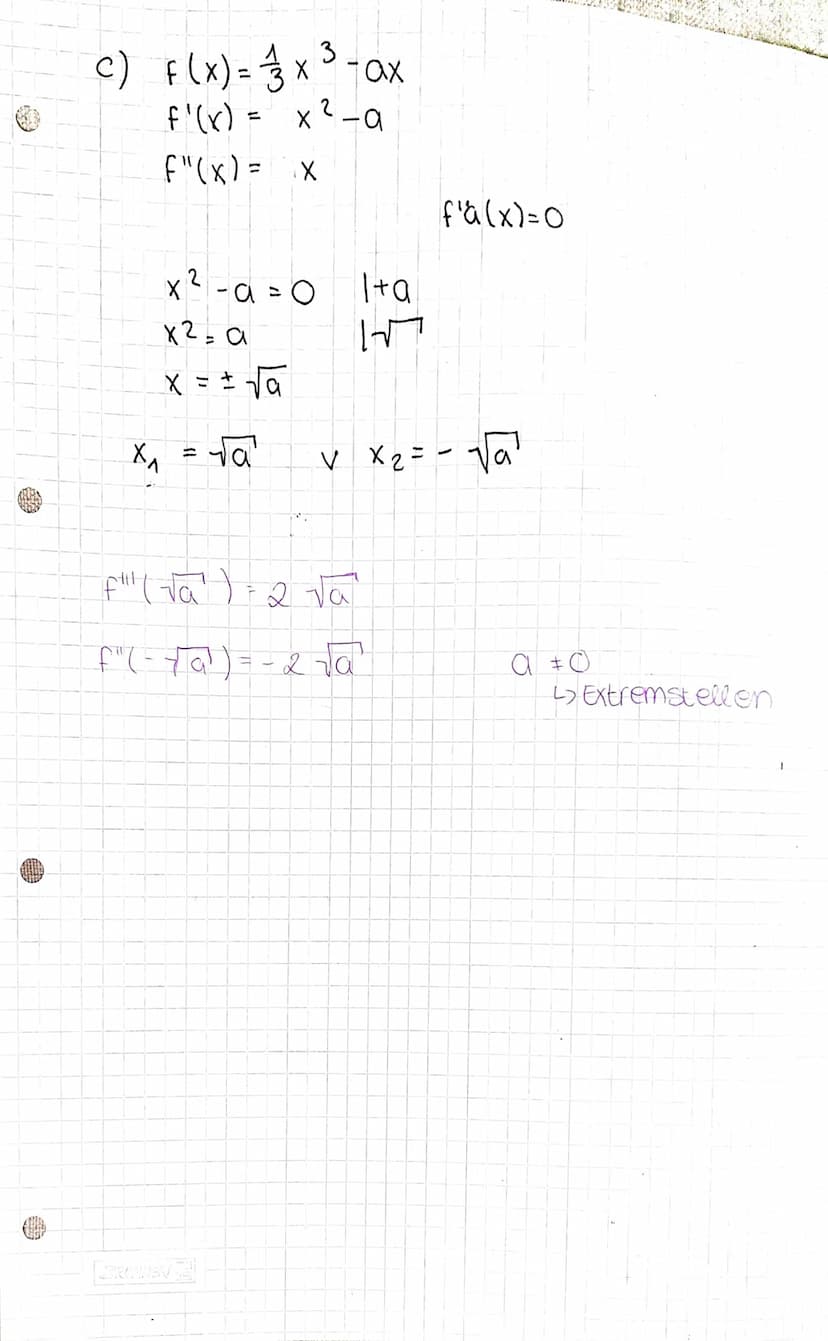 c) f(x) = 1/3 x³ - ax
f'(x) = x² - a
f''(x) = x
f'a(x) = 0
x² - a = 0 |+a
x² = a |√
x = ± √a
x₁ = √a v x₂ = - √a
f'''(√a) = 2 √a
f''(-√a) = -2 √a a ≠ 0
↳ Extremstellen